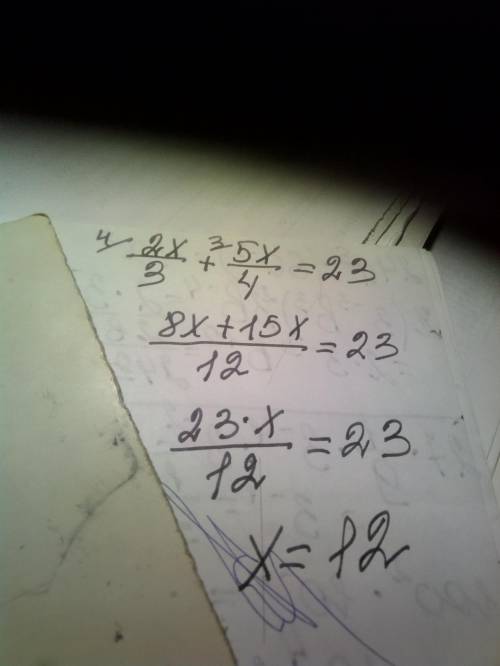 4 2x/3 + 3 5x/4 = 23
8x+15x/12 = 23
23·x/12 = 23
x = 12